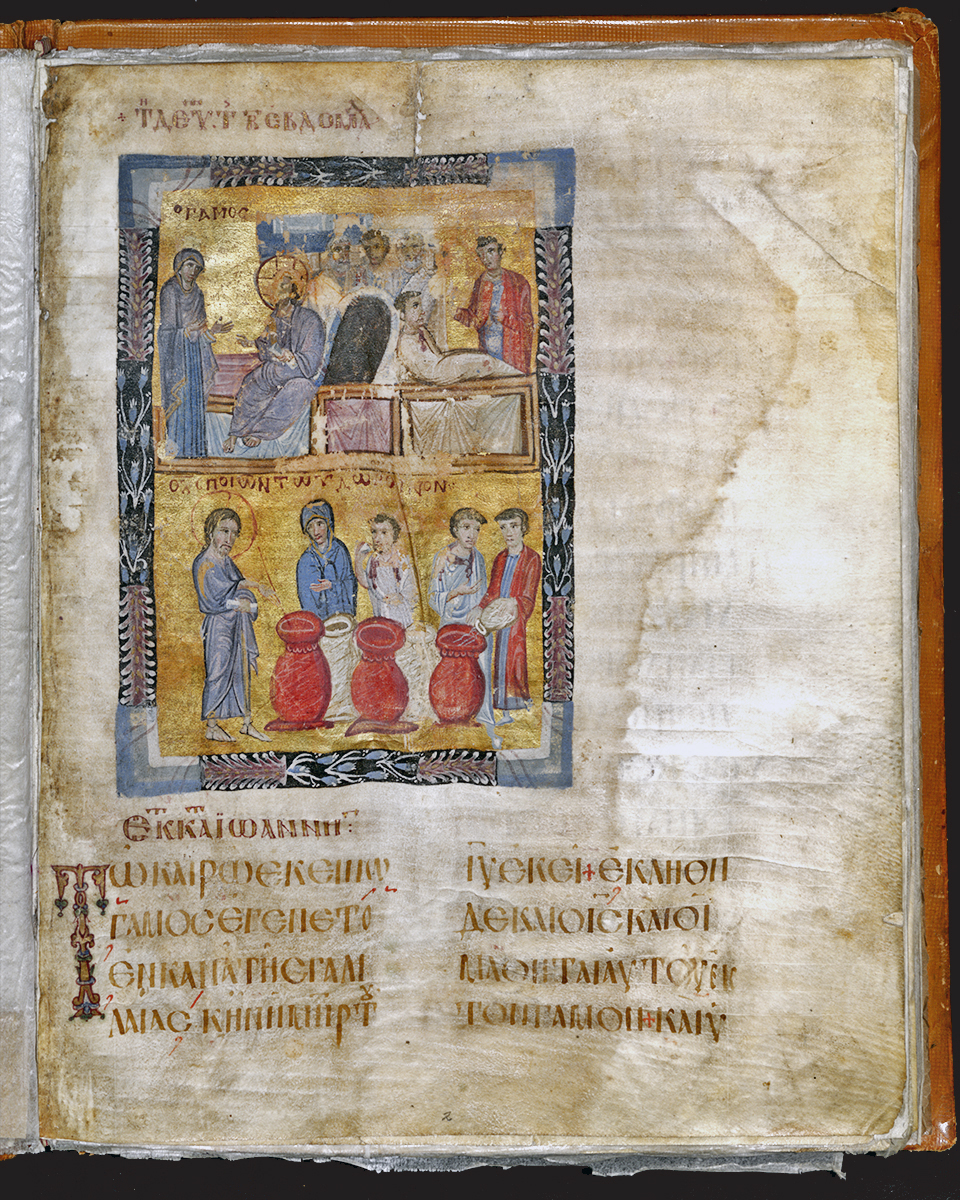 + Τῌ ΔΕΥΤ ΤῌC ΕΒΔΟΜΑΔ
Ο ΓΑΜΟC
Ο ΧC ΠΟΙΩΝ ΤΩ ΥΔΩΡ ΟΙΝΟΝ
ΕΚ Κ̅ΑΙΩΑΝΝΗΝ
ΤΩ ΚΑΙΡΩ ΕΚΕΙΝΩ
ΓΑΜΟC ΕΓΕΝΕΤΟ
ΕΝ ΚΑΝΑ ΤΗC ΓΑΛΙ
ΛΑΙΑC Κ ΗΝ Η ΜΗΡ ΤΟΥ
ΙΥ ΕΚΕΙ + ΕΚΛΗΘΗ
ΔΕ ΚΑΙ Ο ΙC ΚΑΙ ΟΙ
ΜΑΘΗΤΑΙ ΑΥΤΟΥ ΕΙC
ΤΟΝ ΓΑΜΟΝ + ΚΑΙ Υ
2